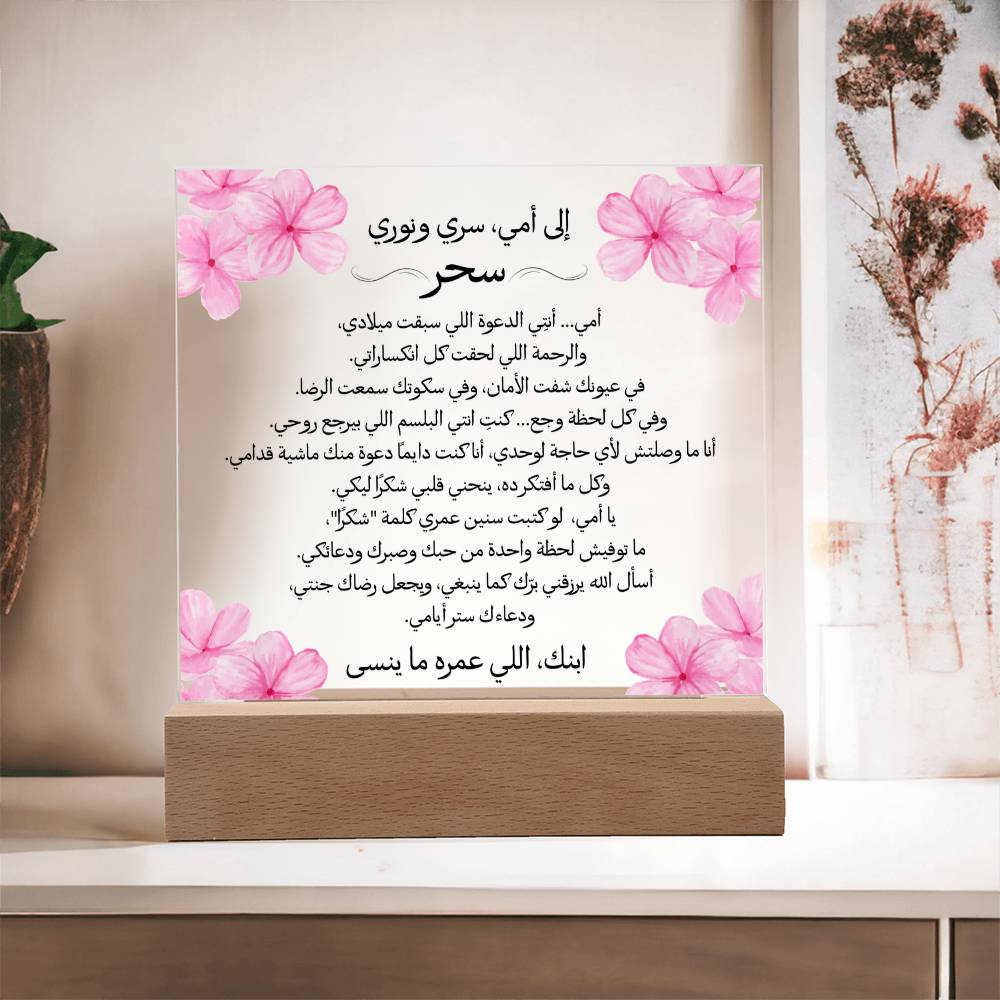 إلى أمي، سري ونوري
سحر
أمي... أنتِي الدعوة اللي سبقت ميلادي،
والرحمة اللي لحقت كل انكساراتي.
في عيونك شفت الأمان، وفي سكوتك سمعت الرضا.
وفي كل لحظة وجع... كنتِ انتي البلسم اللي بيرجع روحي.
أنا ما وصلتش لأي حاجة لوحدي، أنا كنت دايمًا دعوة منك ماشية قدامي.
وكل ما أفتكر ده، ينحني قلبي شكرًا ليكي.
يا أمي، لو كتبت سنين عمري كلمة "شكرًا"،
ما توفيش لحظة واحدة من حبك وصبرك ودعائكي.
أسأل الله يرزقني برّك كما ينبغي، ويجعل رضاك جنتي،
ودعاءك ستر أيامي.
ابنك، اللي عمره ما ينسى